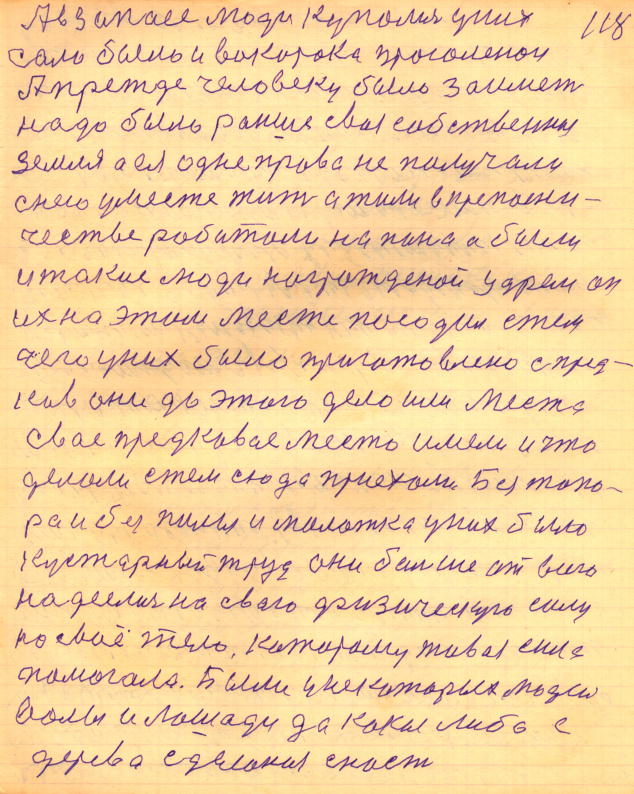 Авзапасе люди купили уних 118
сало было и вокорока прогоменой
Апрежде человеку было заимет
надо было ранше своя собственния
земля а ея одне права не получали
снею уместе жит а жили в препасни-
честве роботоли на пана а были
и такие люди награжденой
их на этом месте посодил стем
чего уних было приготовлено спред-
ков они до этого дело или Места
свае предковае место имели и что
делоли стем сюда приехоли Без топо-
ра и без пилы и молотка уних было
кустарный труд они балше от всего
надеелис на сваго физическую силу
по своё тело, которому
помогала. Были унекоторых людей
волы и лошади да какие либо с
дерева сделоная снаст